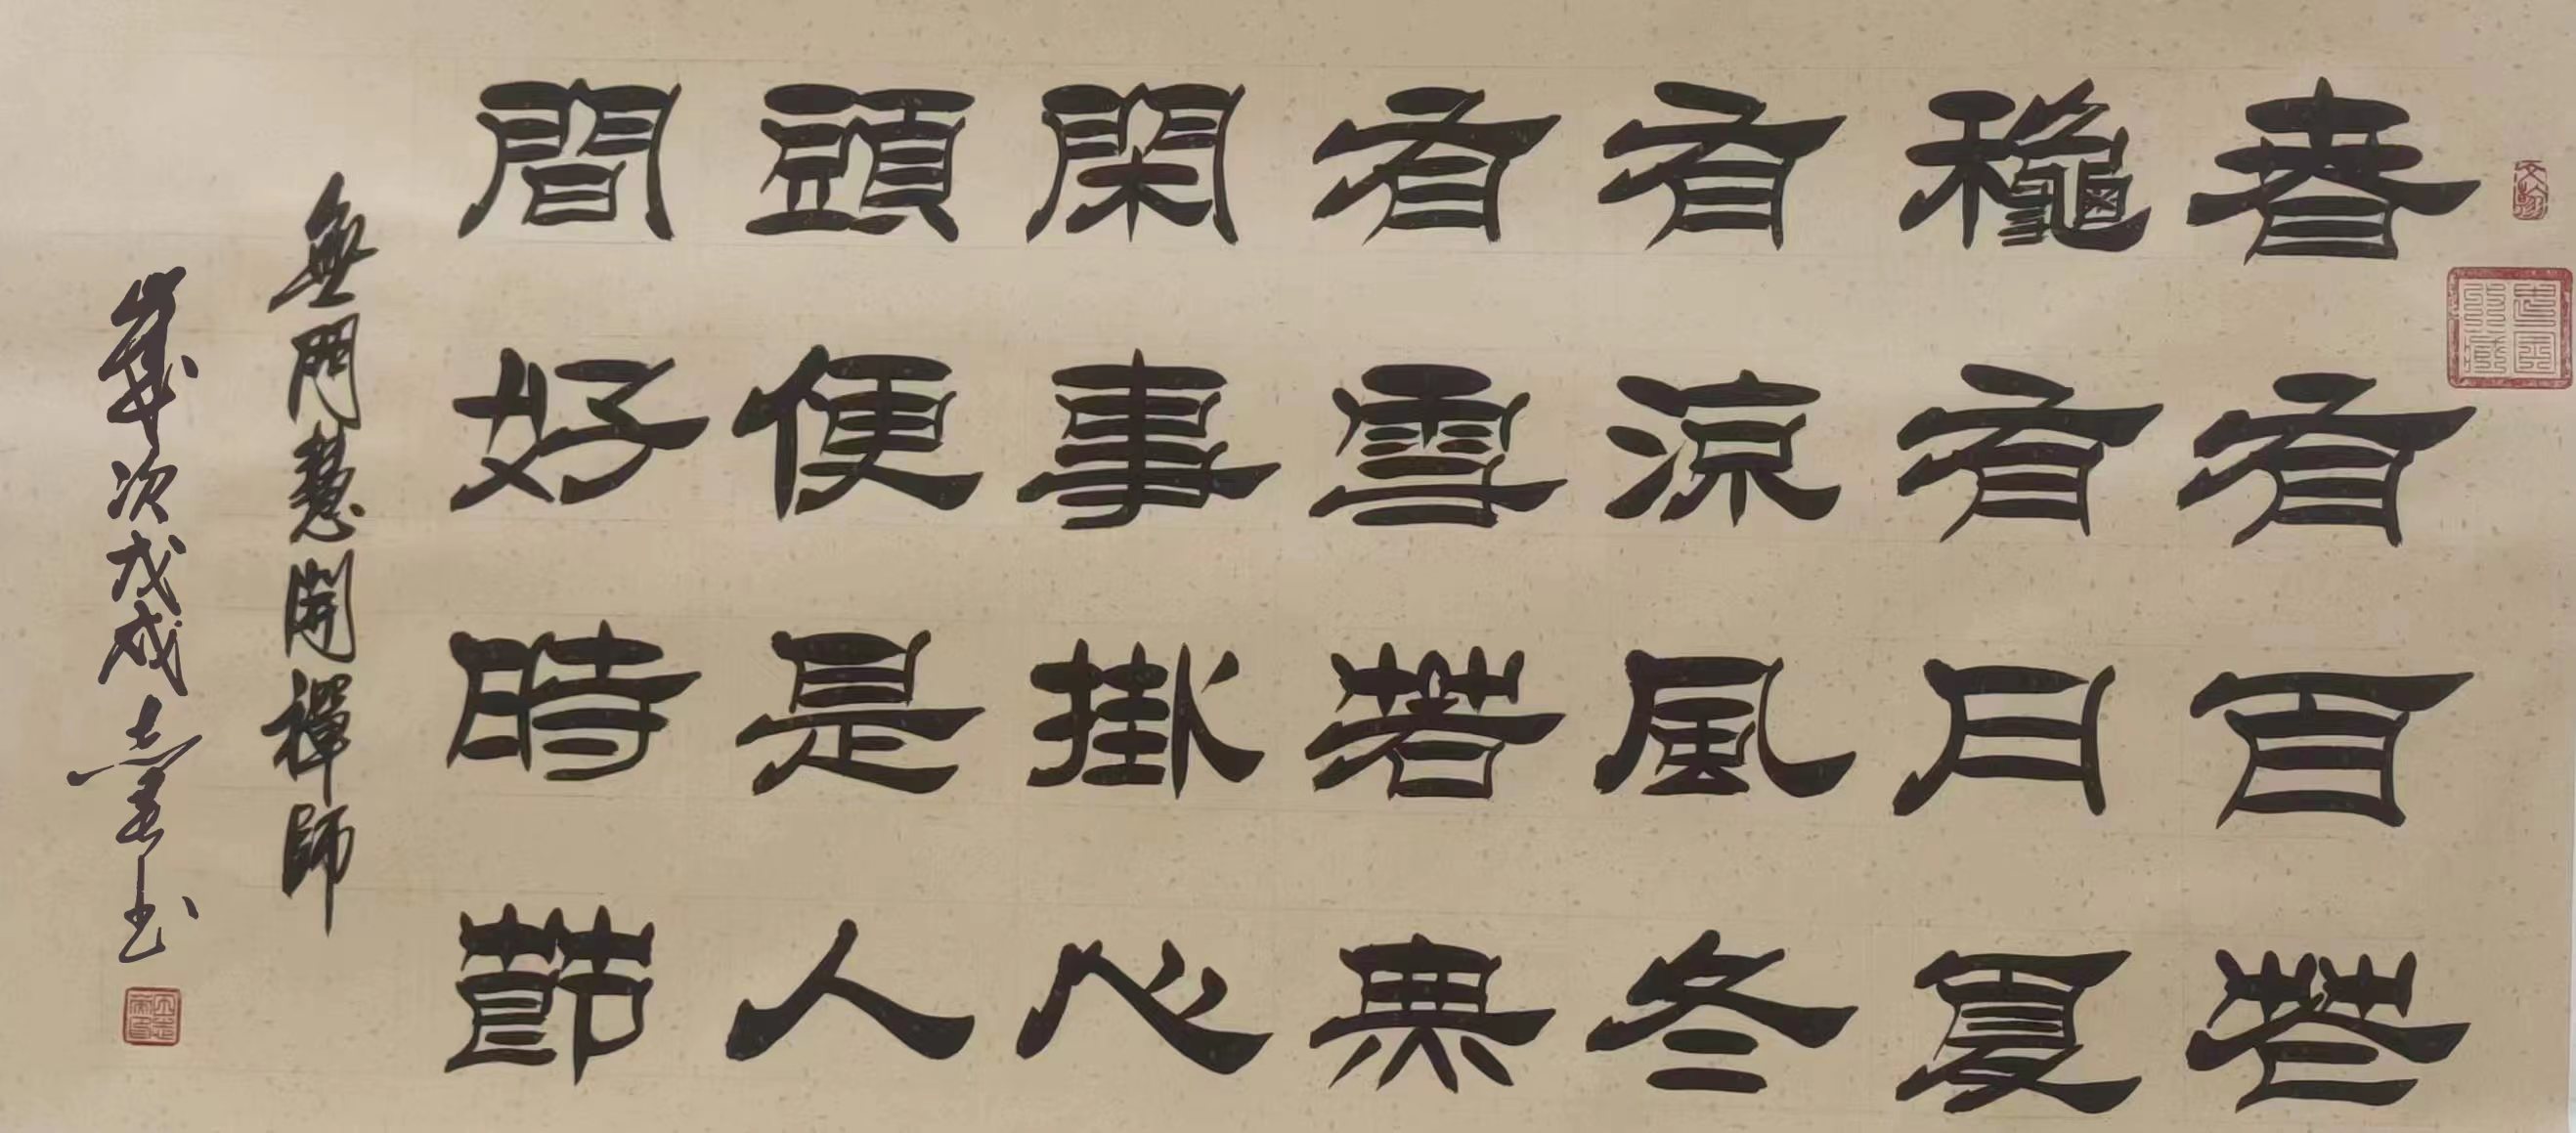 春有百花
穐有月夏
有涼風冬
有雪若無
閑事掛心
頭便是人
間好時節
無門慧開禪師
歲次戊戌
書